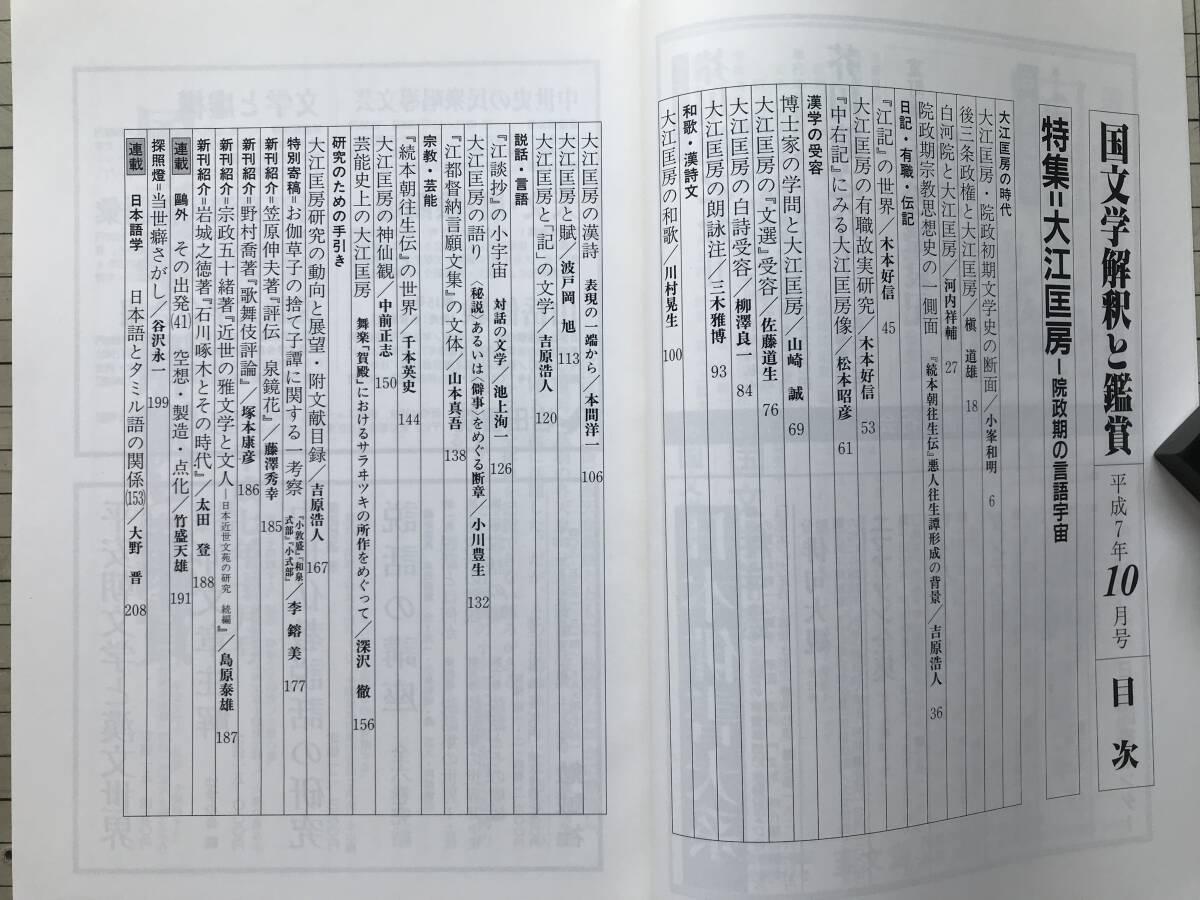 国文学解釈と鑑賞 平成7年10月号 目次
特集=大江匡房―院政期の言語宇宙
大江匡房の時代
大江匡房・院政初期文学史の断面/小峯和明 6
後三条政権と大江匡房/槇 道雄 18
白河院と大江匡房/河内祥輔 27
院政期宗教思想史の一側面 『続本朝往生伝』悪人往生譚形成の背景/吉原浩人 36
日記・有職・伝記
『江記』の世界/木本好信 45
大江匡房の有職故実研究/木本好信 53
『中右記』にみる大江匡房像/松本昭彦 61
漢学の受容
博士家の学問と大江匡房/山崎 誠 69
大江匡房の『文選』受容/佐藤道生 76
大江匡房の白詩受容/柳澤良一 84
大江匡房の朗詠注/三木雅博 93
和歌・漢詩文
大江匡房の和歌/川村晃生 100
大江匡房の漢詩 表現の一端から/本間洋一 106
大江匡房と賦/波戸岡 旭 113
大江匡房と「記」の文学/吉原浩人 120
説話・言語
『江談抄』の小宇宙 対話の文学/池上洵一 126
大江匡房の語り 〈秘説〉あるいは〈僻事〉をめぐる断章/小川豊生 132
『江都督納言願文集』の文体/山本真吾 138
宗教・芸能
『続本朝往生伝』の世界/千本英史 144
大江匡房の神仙観/中前正志 150
芸能史上の大江匡房 舞楽「賀殿」におけるサラヰツキの所作をめぐって/深沢 徹 156
研究のための手引き
大江匡房研究の動向と展望・附文献目録/吉原浩人 167
特別寄稿=お伽草子の捨て子譚に関する一考察 『小敦盛』『和泉式部』『小式部』/李 鎔 美 177
新刊紹介=笠原伸夫著『評伝 泉鏡花』/藤澤秀幸 185
新刊紹介=野村喬著『歌舞伎評論』/塚本康彦 186
新刊紹介=宗政五十緒著『近世の雅文学と文人―日本近世文苑の研究 続編』/島原泰雄 187
新刊紹介=岩城之徳著『石川啄木とその時代』/太田 登 188
連載 鷗外 その出発(41) 空想・製造・点化/竹盛天雄 191
探照燈=当世癖さがし/谷沢永一 199
連載 日本語学 日本語とタミル語の関係(153)/大野 晋 208